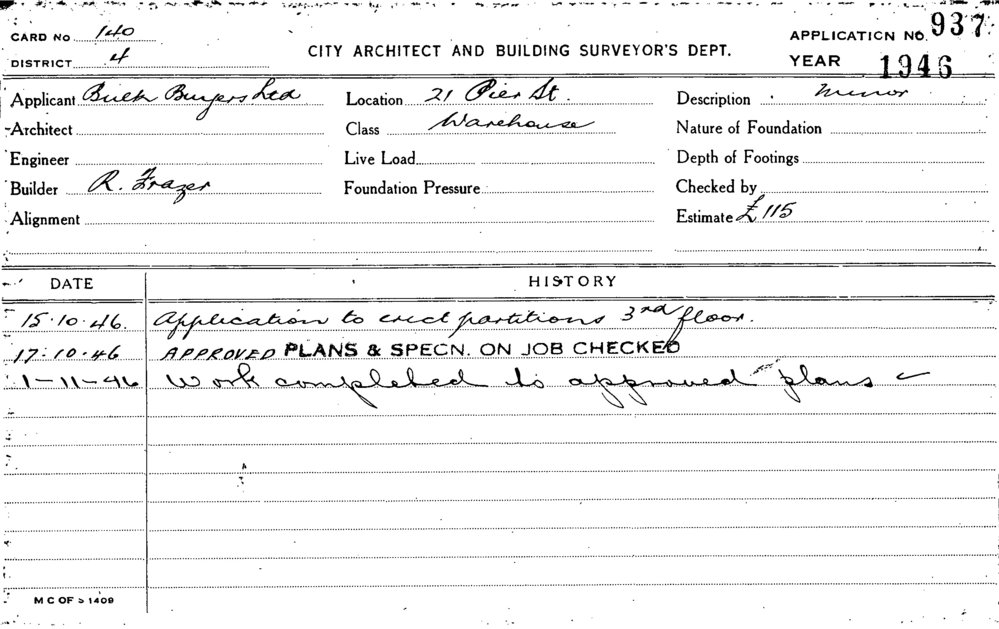 CARD No 140
APPLICATION No. 937
DISTRICT 4
CITY ARCHITECT AND BUILDING SURVEYOR'S DEPT.
YEAR 1946
Applicant Bulk Buyers Ltd
Location 21 Pier St.
Description Minor
Architect
Class Warehouse
Nature of Foundation
Engineer
Live Load
Depth of Footings
Builder R. Frazer
Foundation Pressure
Checked by
Alignment
Estimate £115
DATE HISTORY
15.10.46. Application to erect partitions 3rd floor.
17.10.46 APPROVED PLANS & SPECN. ON JOB CHECKED
1-11-46 Work completed to approved plans
M C OF S 1409